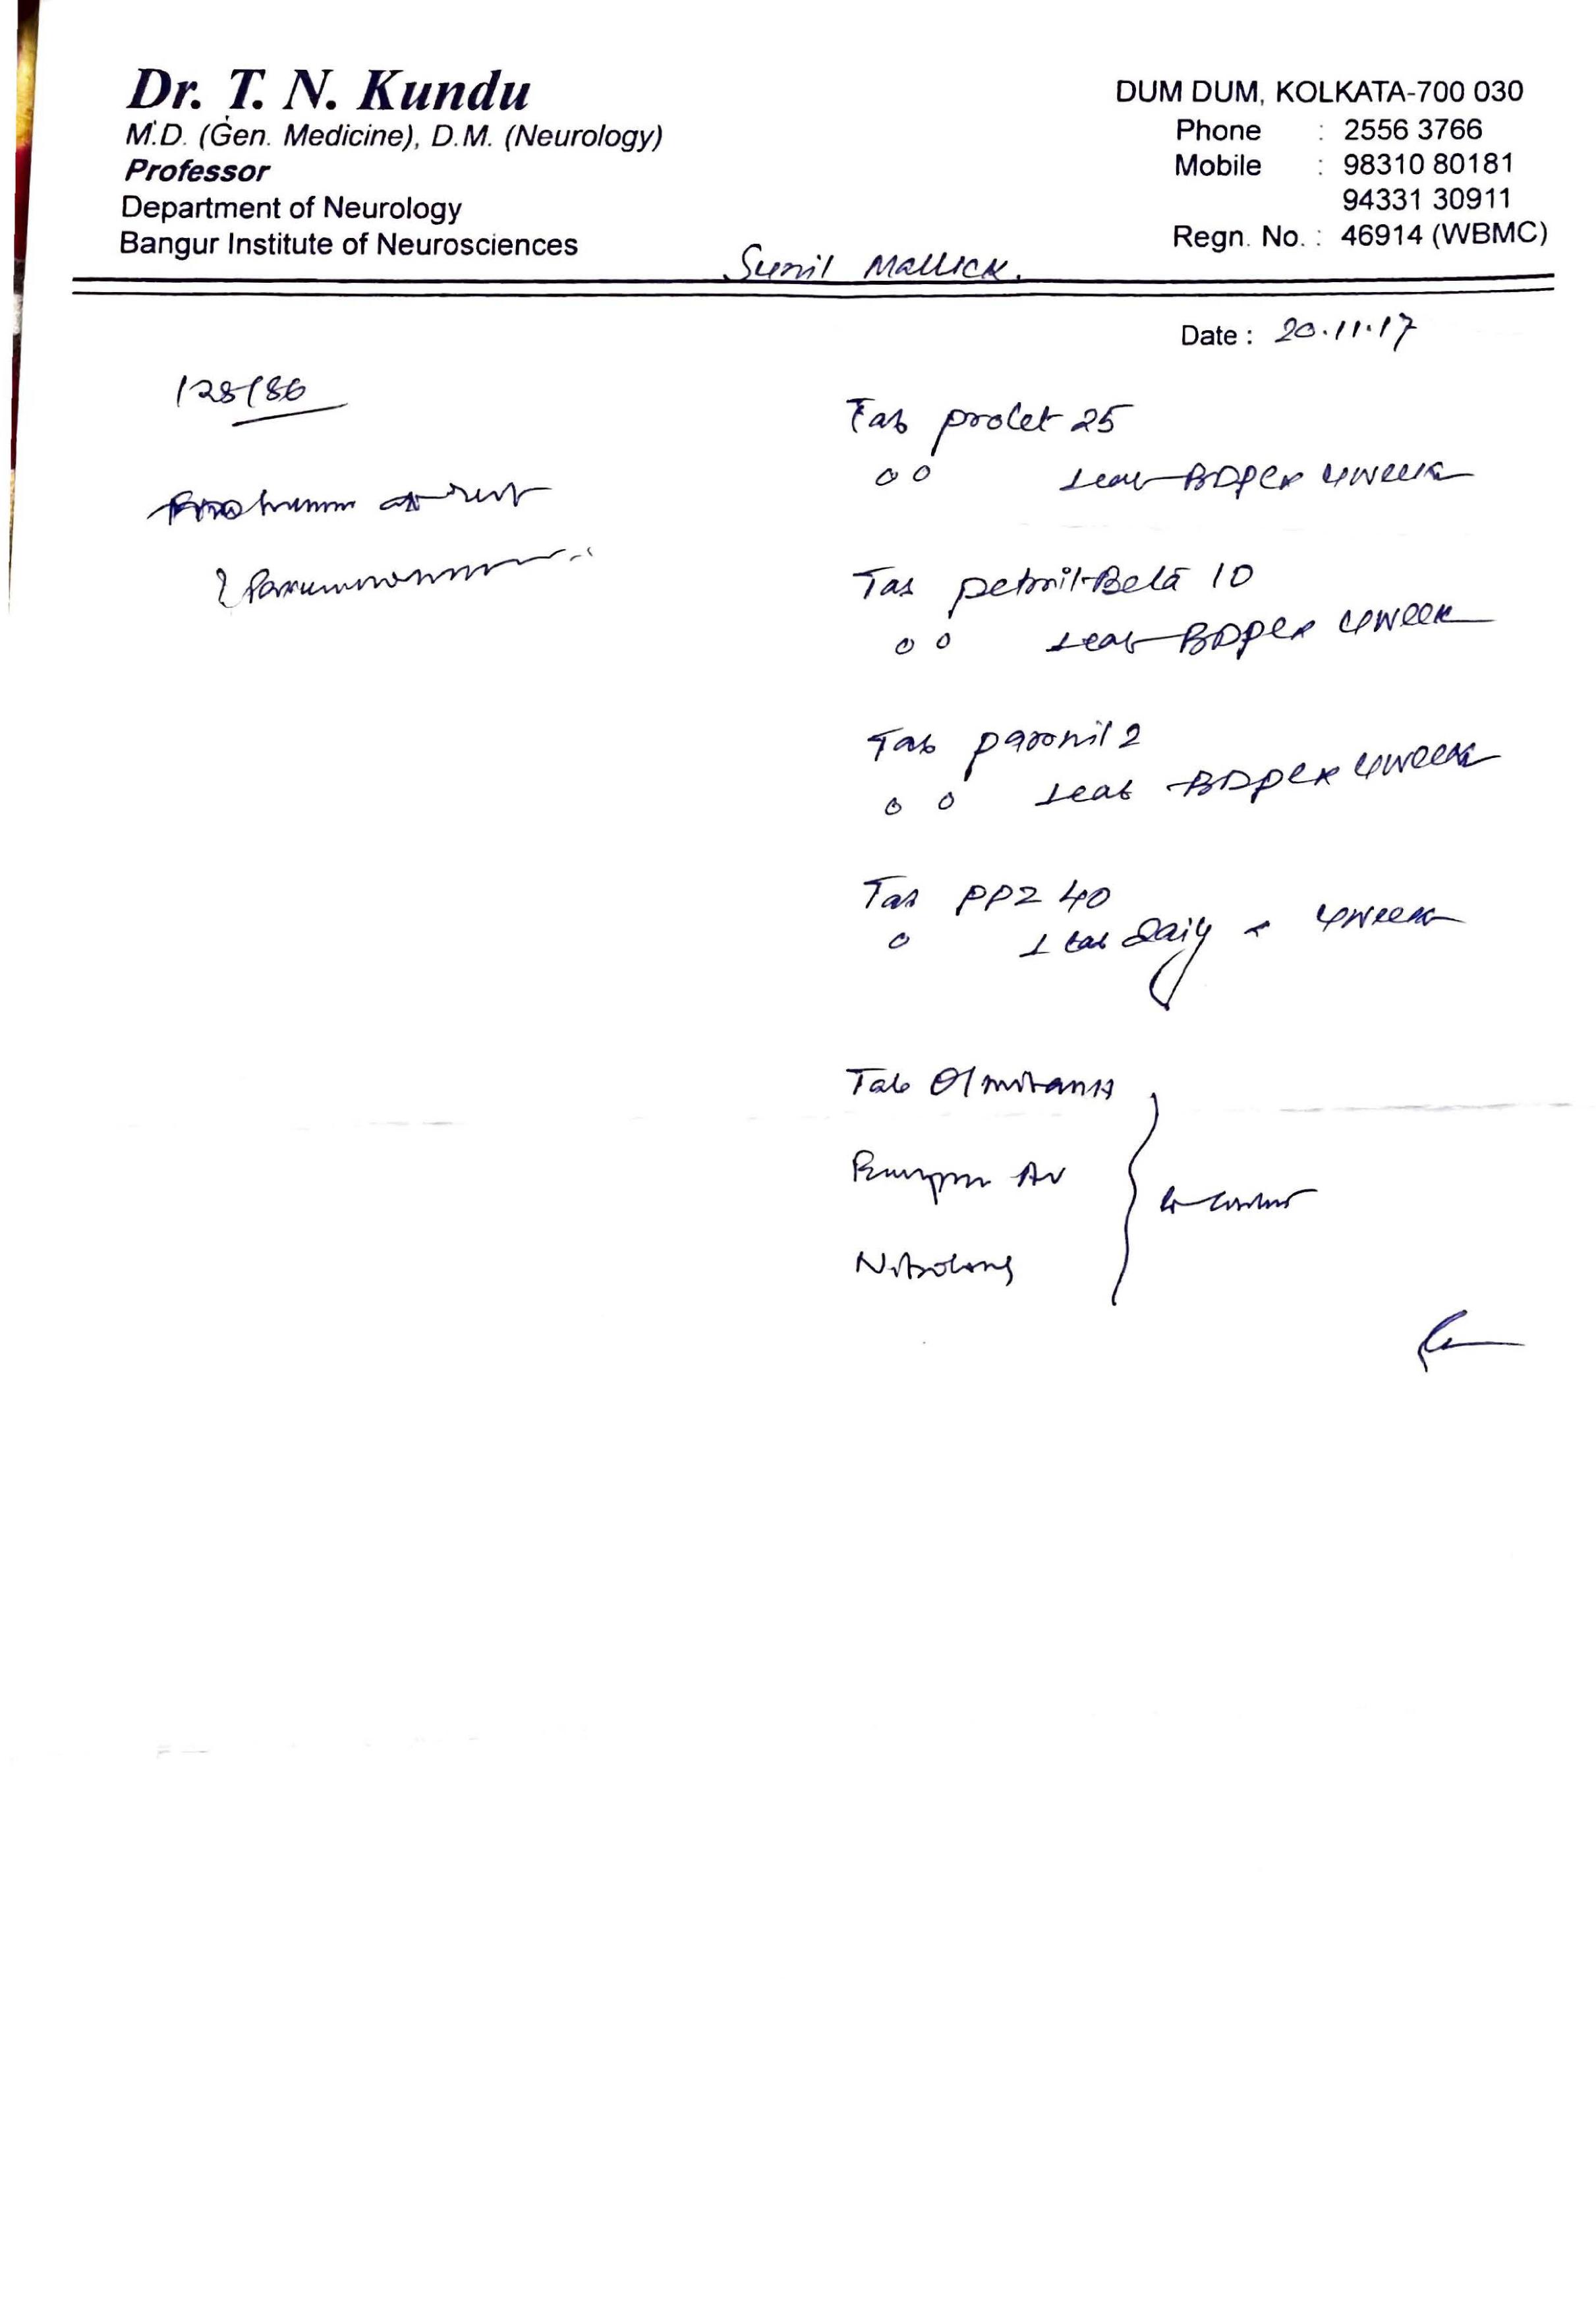 Dr. T. N. Kundu
M.D. (Gen. Medicine), D.M. (Neurology)
Professor
Department of Neurology
Bangur Institute of Neurosciences
DUM DUM, KOLKATA-700 030
Phone : 2556 3766
Mobile : 98310 80181
94331 30911
Regn. No. : 46914 (WBMC)
Sunil Mallick.
Date : 20.11.17
128/86
Tab prolet 25
1 tab BD pc x 4 week
Tab petril-Beta 10
1 tab BD pc x 4 week
Tab paronil 2
1 tab BD pc x 4 week
Tab PPZ 40
1 tab daily x 4 week
Tab
AV
Nitrolong